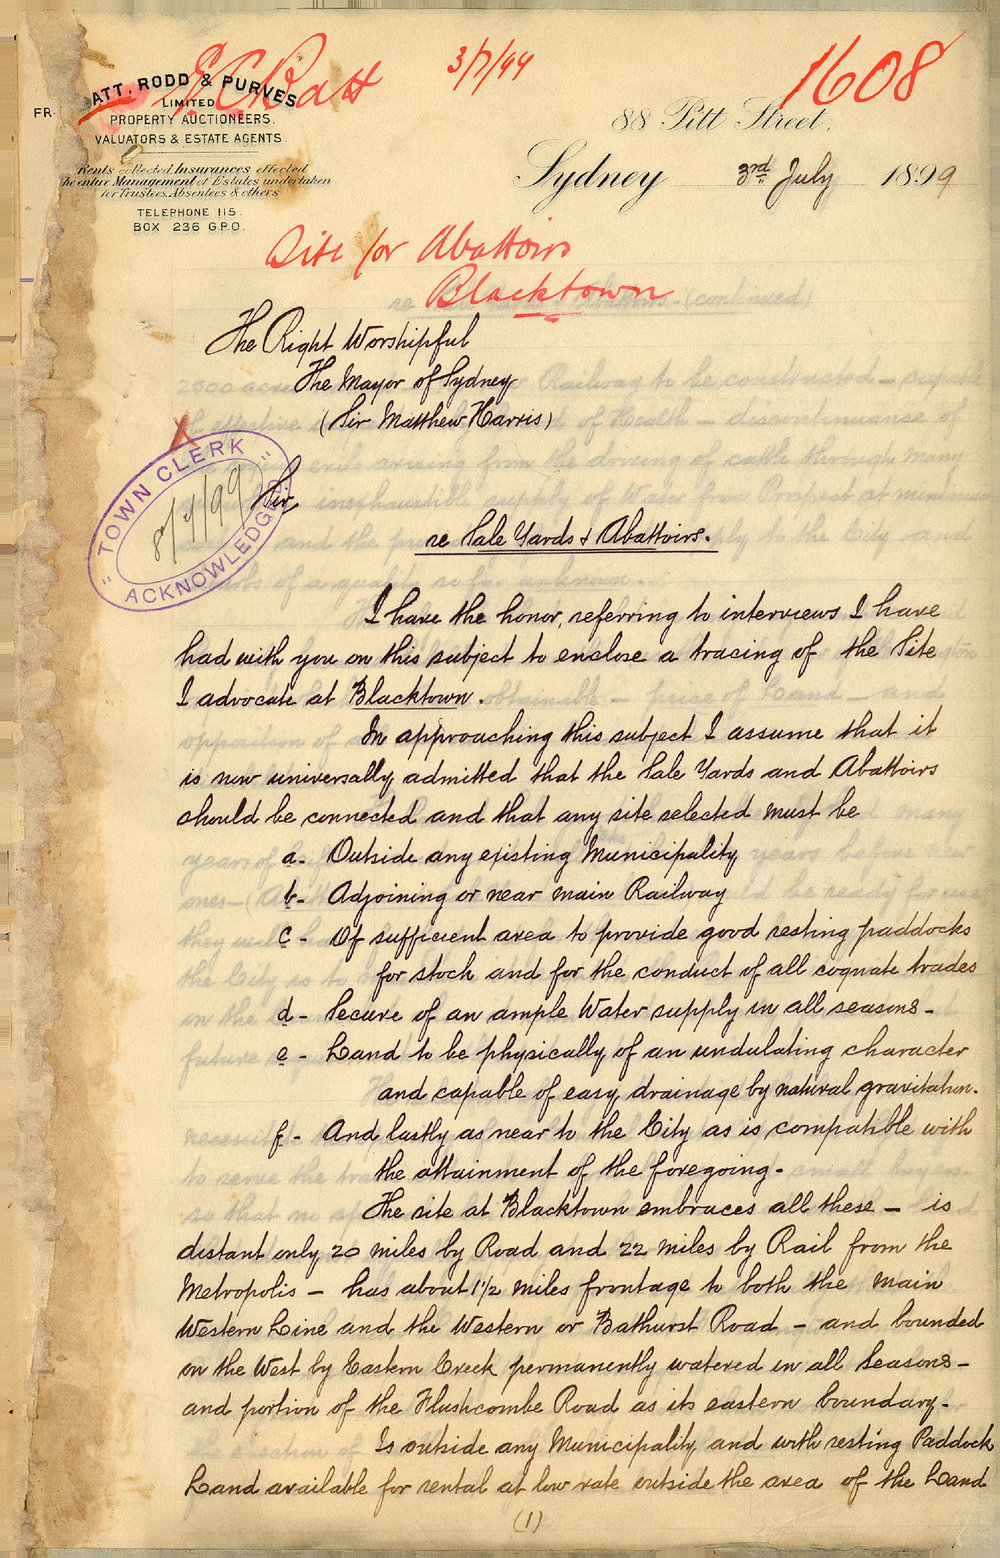 E C Batt
3/7/99
1608
FR
ATT, RODD & PURVES
LIMITED
PROPERTY AUCTIONEERS.
VALUATORS & ESTATE AGENTS.
Rents collected, Insurances effected
The entire Management of Estates undertaken
for Trustees, Absentees & others
TELEPHONE 115.
BOX 236 G.P.O.
88 Pitt Street,
Sydney 3rd July 1899
Site for Abattoirs
Blacktown
The Right Worshipful
The Mayor of Sydney
(Sir Matthew Harris)
X
"TOWN CLERK"
ACKNOWLEDGED
Sir,
re Sale Yards & Abattoirs.
I have the honor, referring to interviews I have
had with you on this subject to enclose a tracing of the Site
I advocate at Blacktown.
In approaching this subject I assume that it
is now universally admitted that the Sale Yards and Abattoirs
should be connected and that any site selected must be
a - Outside any existing Municipality
b - Adjoining or near main Railway
c - Of sufficient area to provide good resting paddocks
for stock and for the conduct of all cognate trades
d - Secure of an ample Water supply in all seasons -
e - Land to be physically of an undulating character
and capable of easy drainage by natural gravitation.
f - And lastly as near to the City as is compatible with
the attainment of the foregoing.
The site at Blacktown embraces all these - is
distant only 20 miles by Road and 22 miles by Rail from the
Metropolis - has about 1 1/2 miles frontage to both the main
Western Line and the Western or Bathurst Road - and bounded
on the West by Eastern Creek permanently watered in all Seasons -
and portion of the Flushcombe Road as its eastern boundary.
Is outside any Municipality and with resting Paddock
Land available for rental at low rate outside the area of the Land
(1)